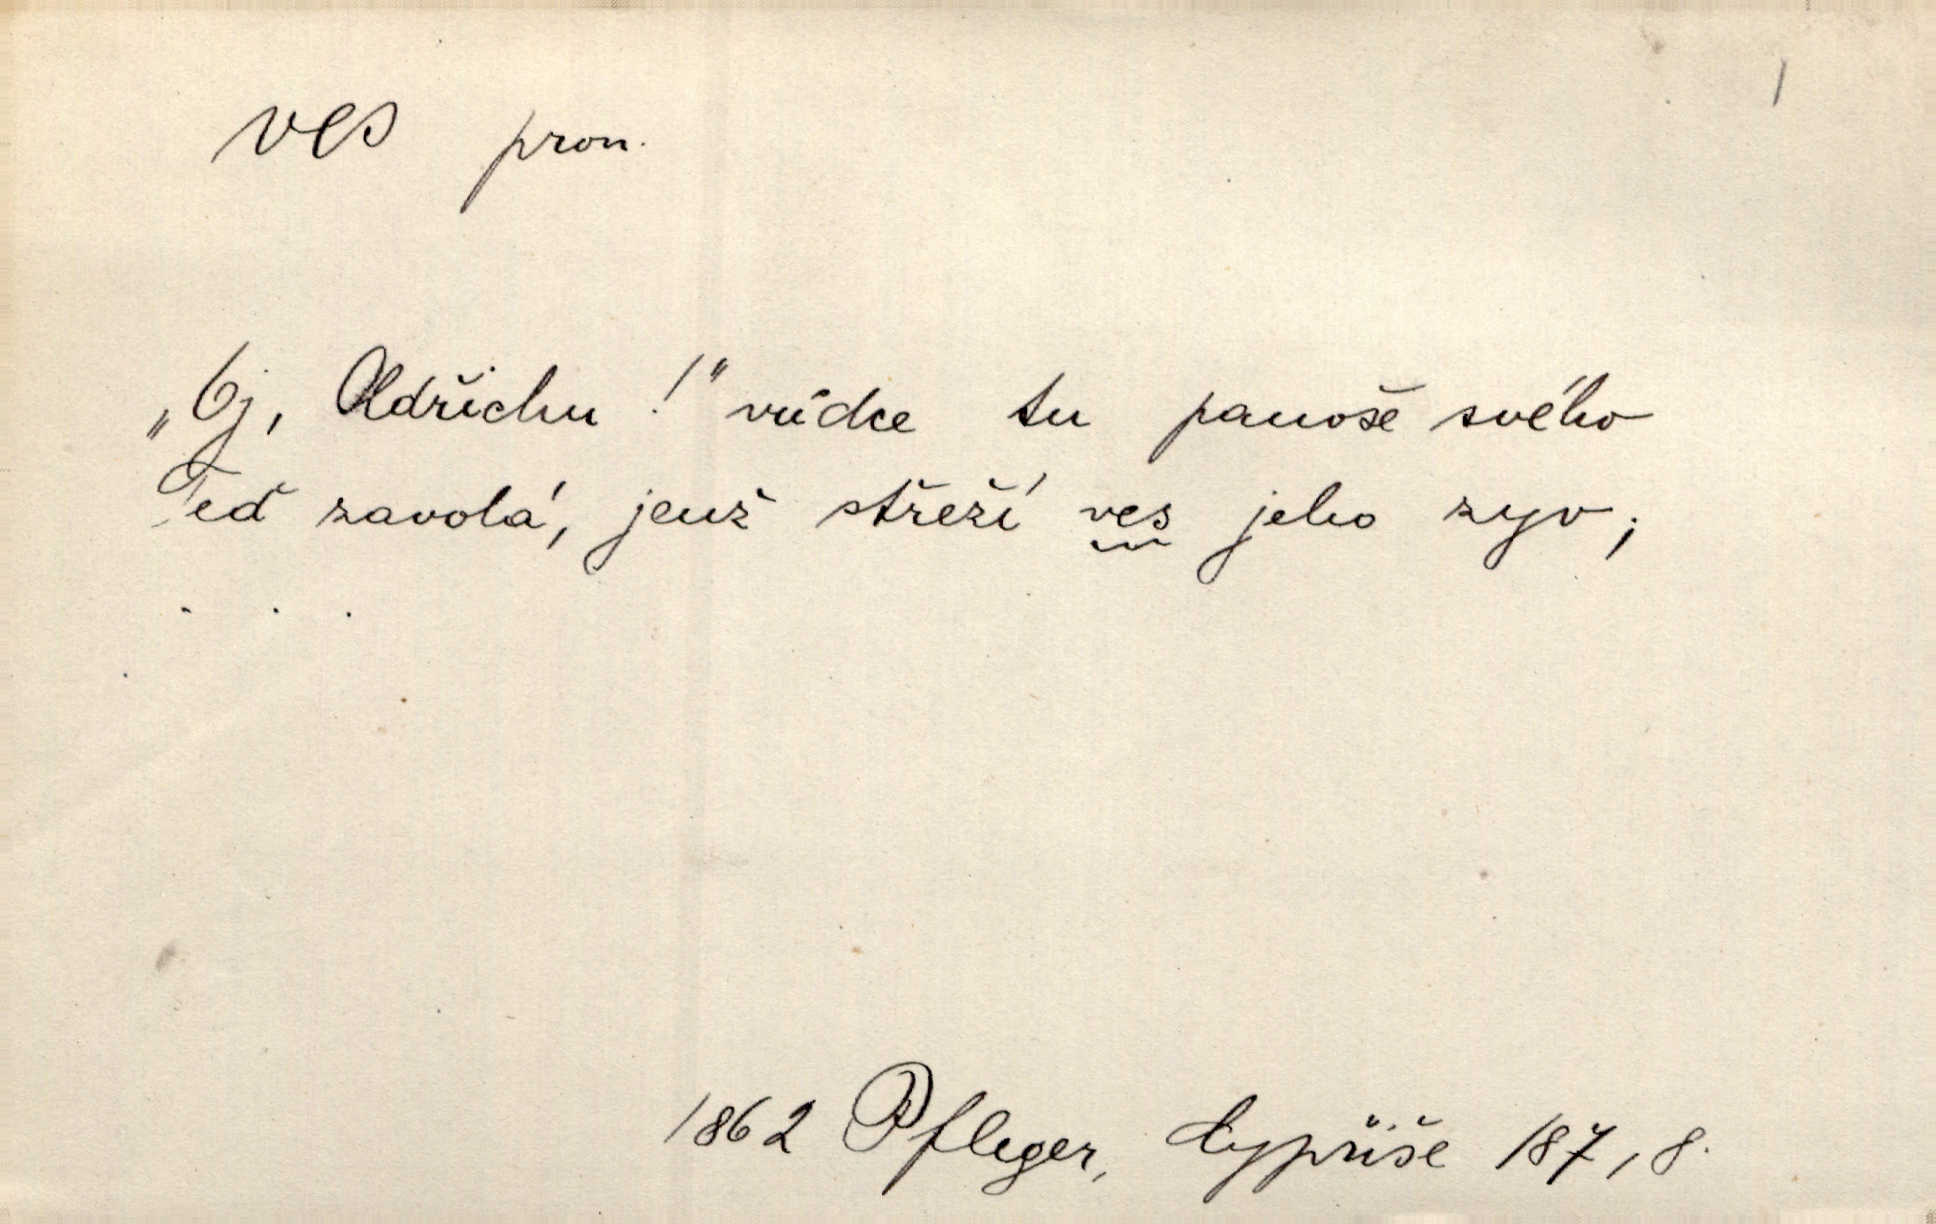 ves pron. 1
„Oj, Oldřichu!" vůdce tu panoše svého
Teď zavolá, jenž střeží ves jeho zyv;
. . .
1862 Pfleger, Cypřiše 187, 8.